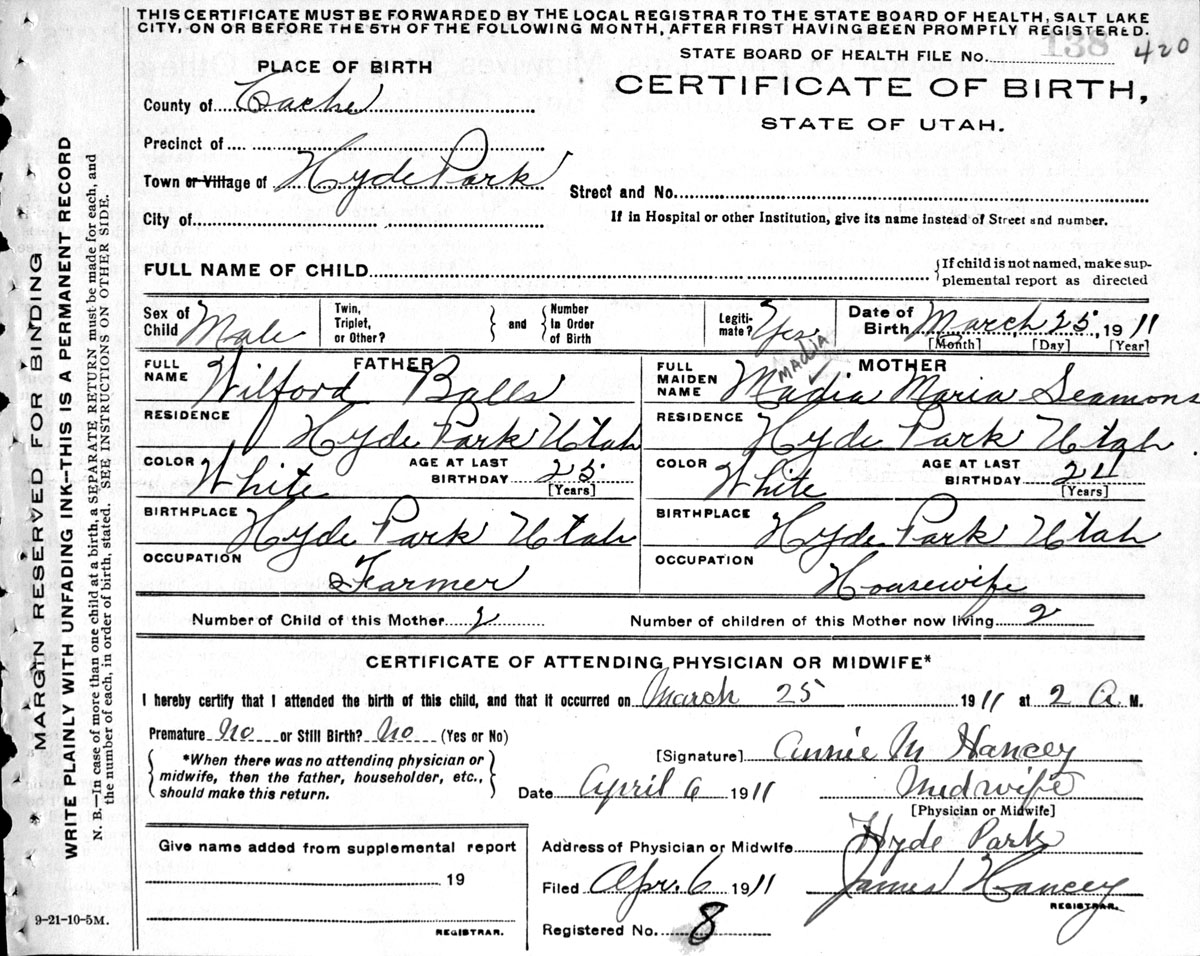 THIS CERTIFICATE MUST BE FORWARDED BY THE LOCAL REGISTRAR TO THE STATE BOARD OF HEALTH, SALT LAKE
CITY, ON OR BEFORE THE 5TH OF THE FOLLOWING MONTH, AFTER FIRST HAVING BEEN PROMPTLY REGISTERED.
138 420
STATE BOARD OF HEALTH FILE No.
PLACE OF BIRTH
CERTIFICATE OF BIRTH,
STATE OF UTAH.
County of Cache
Precinct of
Town or Village of Hyde Park
Street and No.
City of
If in Hospital or other Institution, give its name instead of Street and number.
FULL NAME OF CHILD
If child is not named, make sup-
plemental report as directed
Sex of Child Male
Twin, Triplet, or Other?
and
Number In Order of Birth
Legiti- mate? Yes
Date of Birth March 25, 1911
[Month] [Day] [Year]
FATHER
FULL NAME Wilford Balls
RESIDENCE Hyde Park Utah
COLOR White
AGE AT LAST BIRTHDAY 25
[Years]
BIRTHPLACE Hyde Park Utah
OCCUPATION Farmer
MOTHER
MADIA
FULL MAIDEN NAME Madia Maria Seamons
RESIDENCE Hyde Park Utah
COLOR White
AGE AT LAST BIRTHDAY 24
[Years]
BIRTHPLACE Hyde Park Utah
OCCUPATION Housewife
Number of Child of this Mother 2
Number of children of this Mother now living 2
CERTIFICATE OF ATTENDING PHYSICIAN OR MIDWIFE*
I hereby certify that I attended the birth of this child, and that it occurred on March 25 1911 at 2 A M.
Premature No or Still Birth? No (Yes or No)
*When there was no attending physician or
midwife, then the father, householder, etc.,
should make this return.
[Signature] Annie M Hancey
Date April 6 1911 Midwife
[Physician or Midwife]
Address of Physician or Midwife Hyde Park
Filed Apr. 6 1911 James Hancey
REGISTRAR.
Registered No. 8
Give name added from supplemental report
19
REGISTRAR.
9-21-10-5M.
MARGIN RESERVED FOR BINDING
WRITE PLAINLY WITH UNFADING INK--THIS IS A PERMANENT RECORD
N. B.—In case of more than one child at a birth, a SEPARATE RETURN must be made for each, and
the number of each, in order of birth, stated. SEE INSTRUCTIONS ON OTHER SIDE.